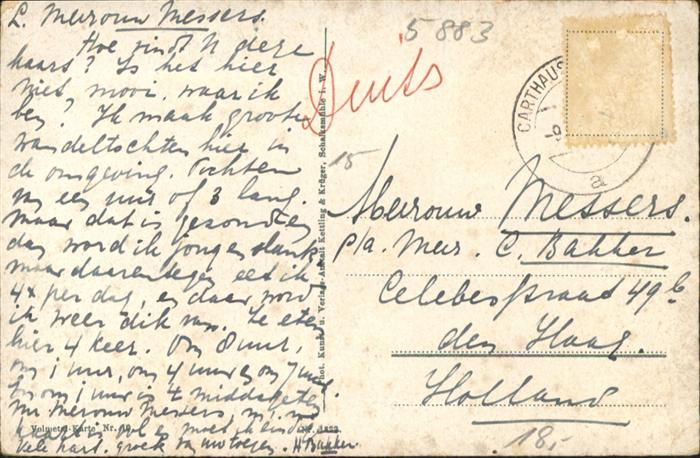 L. Meurouw Messers.
Hoe vindt U deze
kaart? Is het hier
niet mooi, waar ik
ben? Ik maak groote
wandeltochten hier in
de omgeving. Tochten
van een uur of 3 lang.
maar dat is gezond en
dan word ik jong en slank
maar daarentegen eet ik
4x per dag, en daar word
ik weer dik van. Ze eten
hier 4 keer. Om 8 uur,
om 1 uur, om 4 uur en om 7 uur
en om 1 uur is 't middageten
Nu Meurouw Messers,
kaart is vol en moet ik
vele hart. groet van
H Bakker.
Volmetal-Karte Nr. 19.
Phot. Kunst- u. Verlags-Anstalt Kettling & Krüger, Schalksmühle i. W.
5883
Duits
15
CARTHAUS
a
Meurouw Messers.
p/a. Meur. C. Bakker
Celebesstraat 49b
den Haag.
Holland
18,-